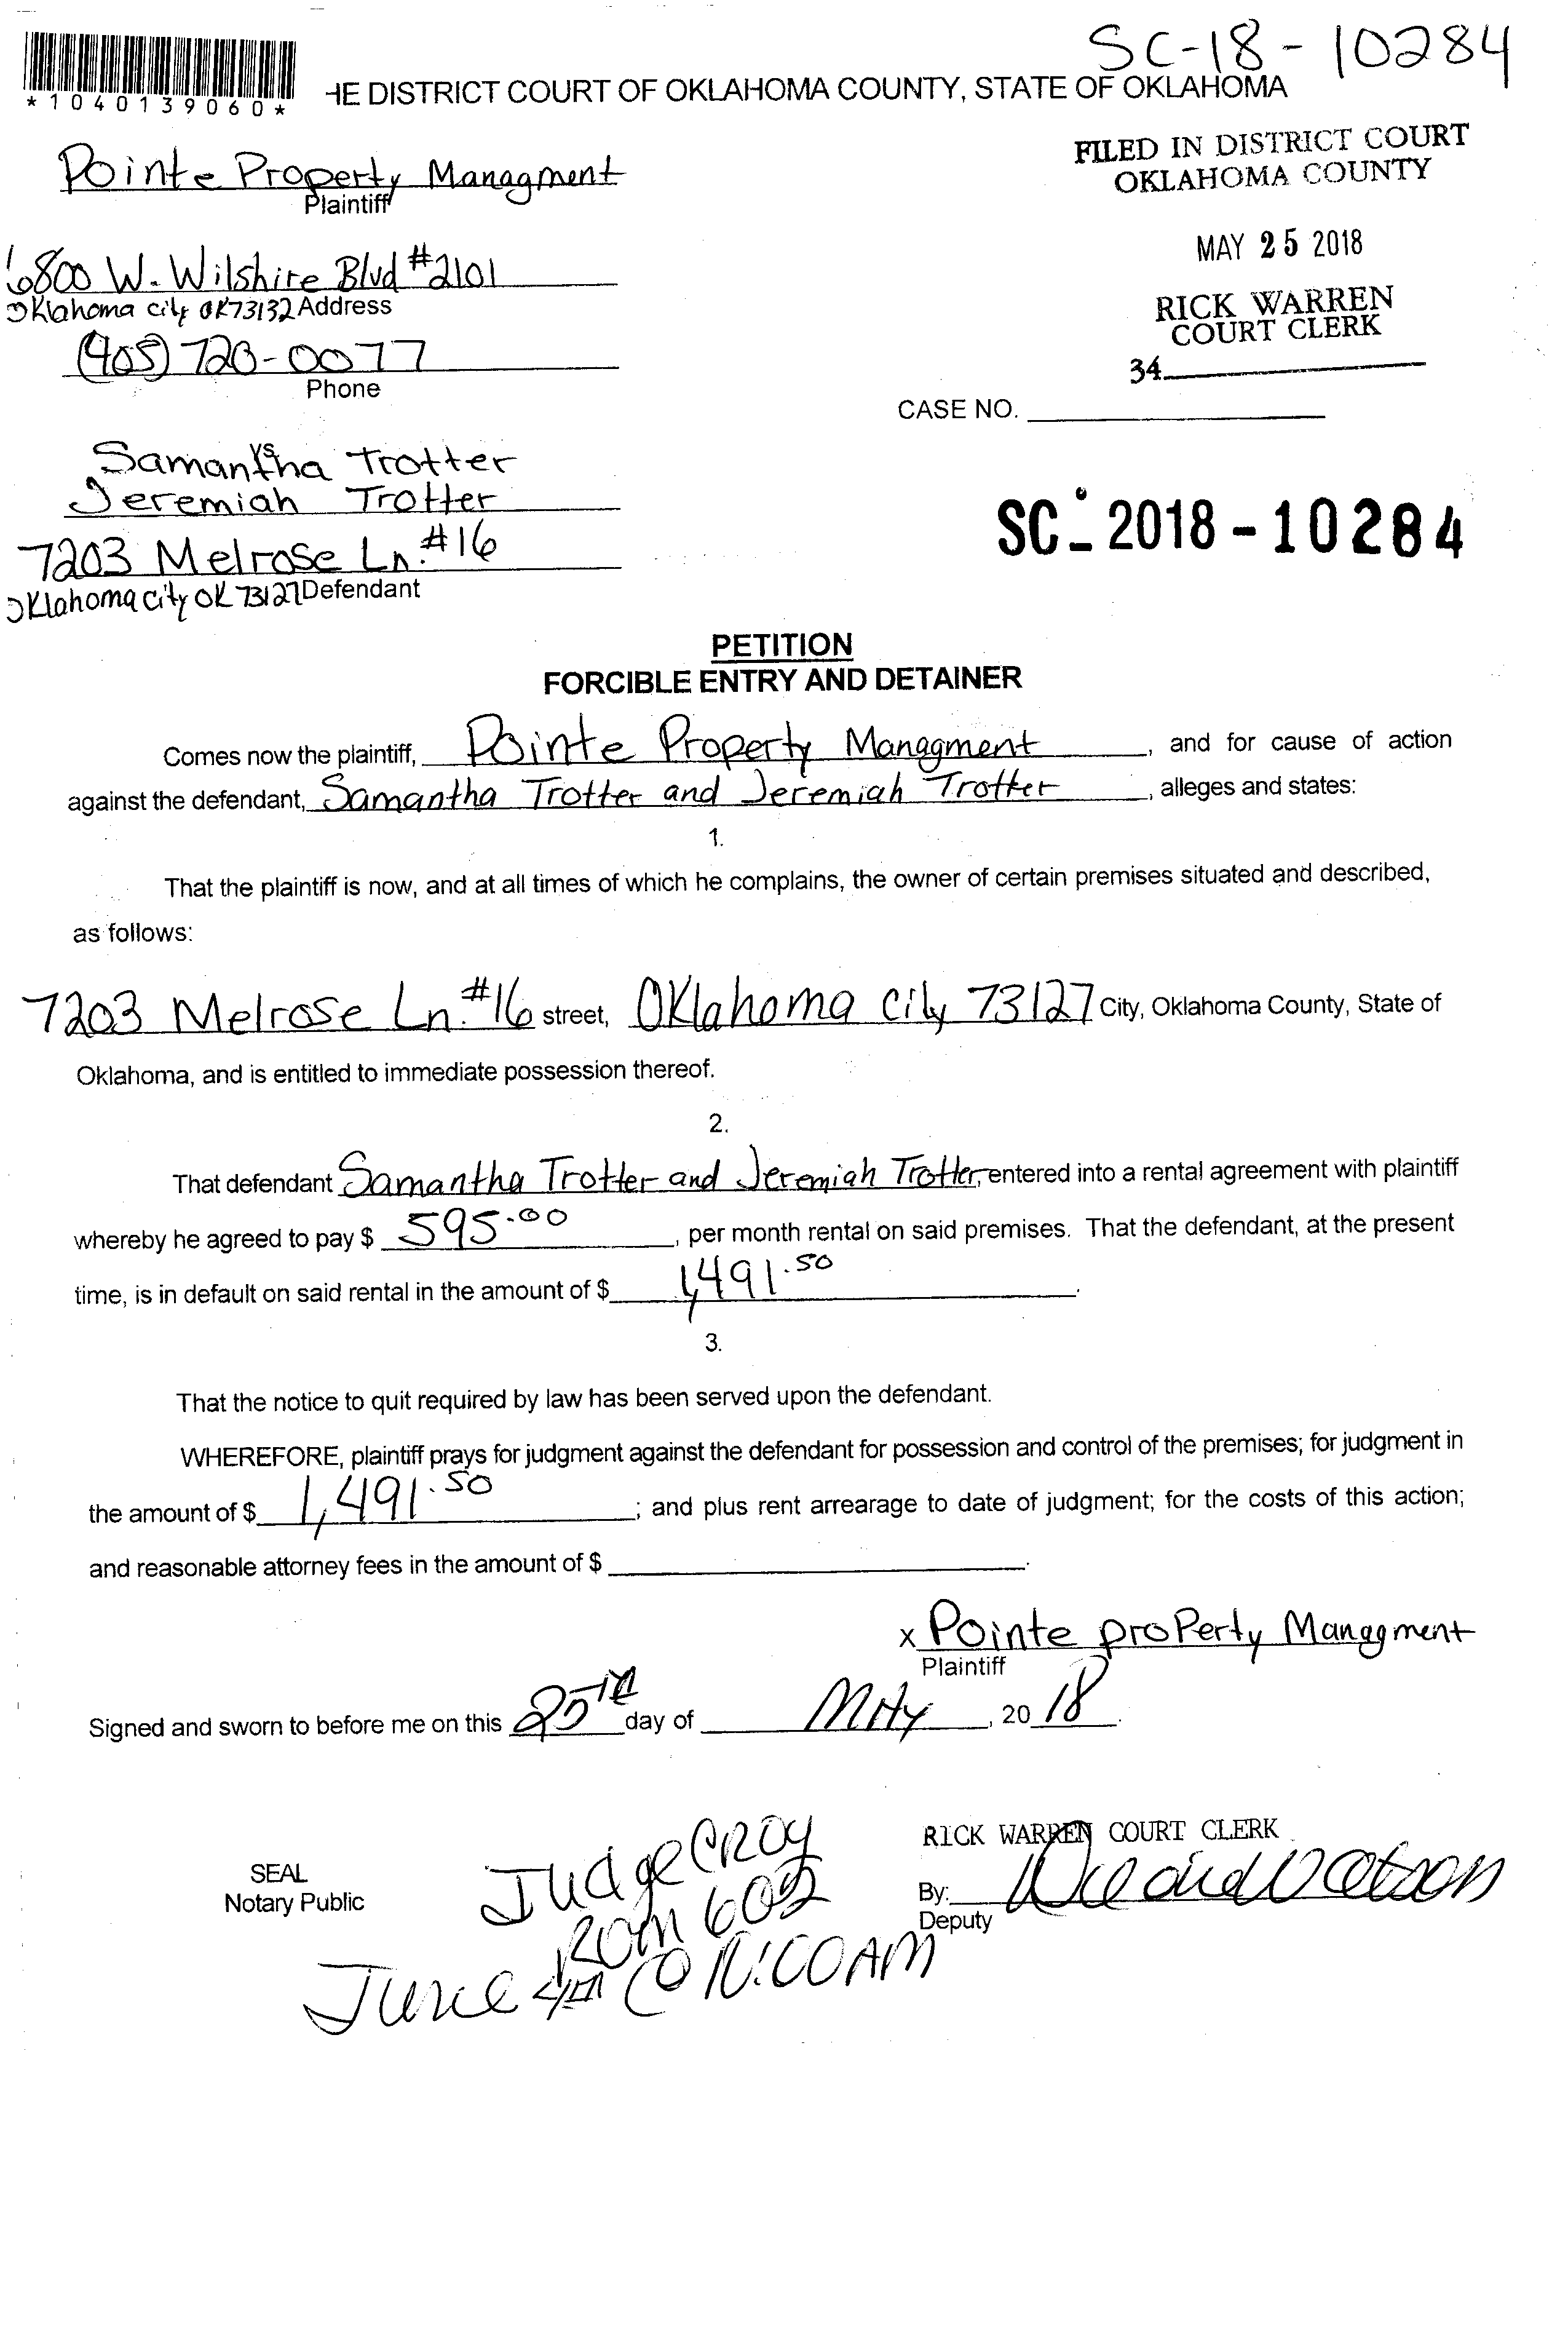 SC-18-10284
*1040139060*
HE DISTRICT COURT OF OKLAHOMA COUNTY, STATE OF OKLAHOMA
Pointe Property Managment
Plaintiff
FILED IN DISTRICT COURT
OKLAHOMA COUNTY
MAY 25 2018
RICK WARREN
COURT CLERK
34
6800 W. Wilshire Blvd #2101
Oklahoma city OK 73132 Address
(405) 720-0077
Phone
CASE NO.
vs
Samantha Trotter
Jeremiah Trotter
7203 Melrose Ln. #16
Oklahoma City OK 73127 Defendant
SC-2018-10284
PETITION
FORCIBLE ENTRY AND DETAINER
Comes now the plaintiff, Pointe Property Managment, and for cause of action
against the defendant, Samantha Trotter and Jeremiah Trotter, alleges and states:
1.
That the plaintiff is now, and at all times of which he complains, the owner of certain premises situated and described,
as follows:
7203 Melrose Ln. #16 street, Oklahoma city 73127 City, Oklahoma County, State of
Oklahoma, and is entitled to immediate possession thereof.
2.
That defendant Samantha Trotter and Jeremiah Trotter, entered into a rental agreement with plaintiff
whereby he agreed to pay $ 595.00, per month rental on said premises. That the defendant, at the present
time, is in default on said rental in the amount of $ 1,491.50.
3.
That the notice to quit required by law has been served upon the defendant.
WHEREFORE, plaintiff prays for judgment against the defendant for possession and control of the premises; for judgment in
the amount of $ 1,491.50; and plus rent arrearage to date of judgment; for the costs of this action;
and reasonable attorney fees in the amount of $ .
x Pointe proPerty Managment
Plaintiff
Signed and sworn to before me on this 25TH day of MAy, 2018.
SEAL
Notary Public
Judge CROY
ROM 602
June 4TH @ 10:00 AM
RICK WARREN COURT CLERK
By:
Deputy